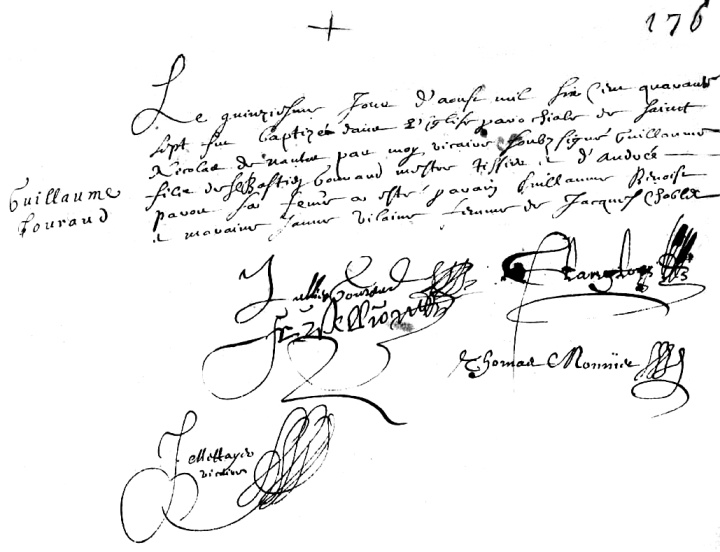 176
Le quinziesme Jour d'aoust mil six cens quarante
sept fut baptizé dans l'Eglise parochiale de Sainct
Nicolas de nantes par moy vicaire soubz signé Guillaume
filz de Sebastien Couraud mestre tissier et d'Andrée
pavou sa feme a esté parain Guillaume Benoist
et maraine Janne Vilaine femme de Jacques
Guillaume
Couraud
Langloys
Thomas Monnier
J Mettayer
vicaire